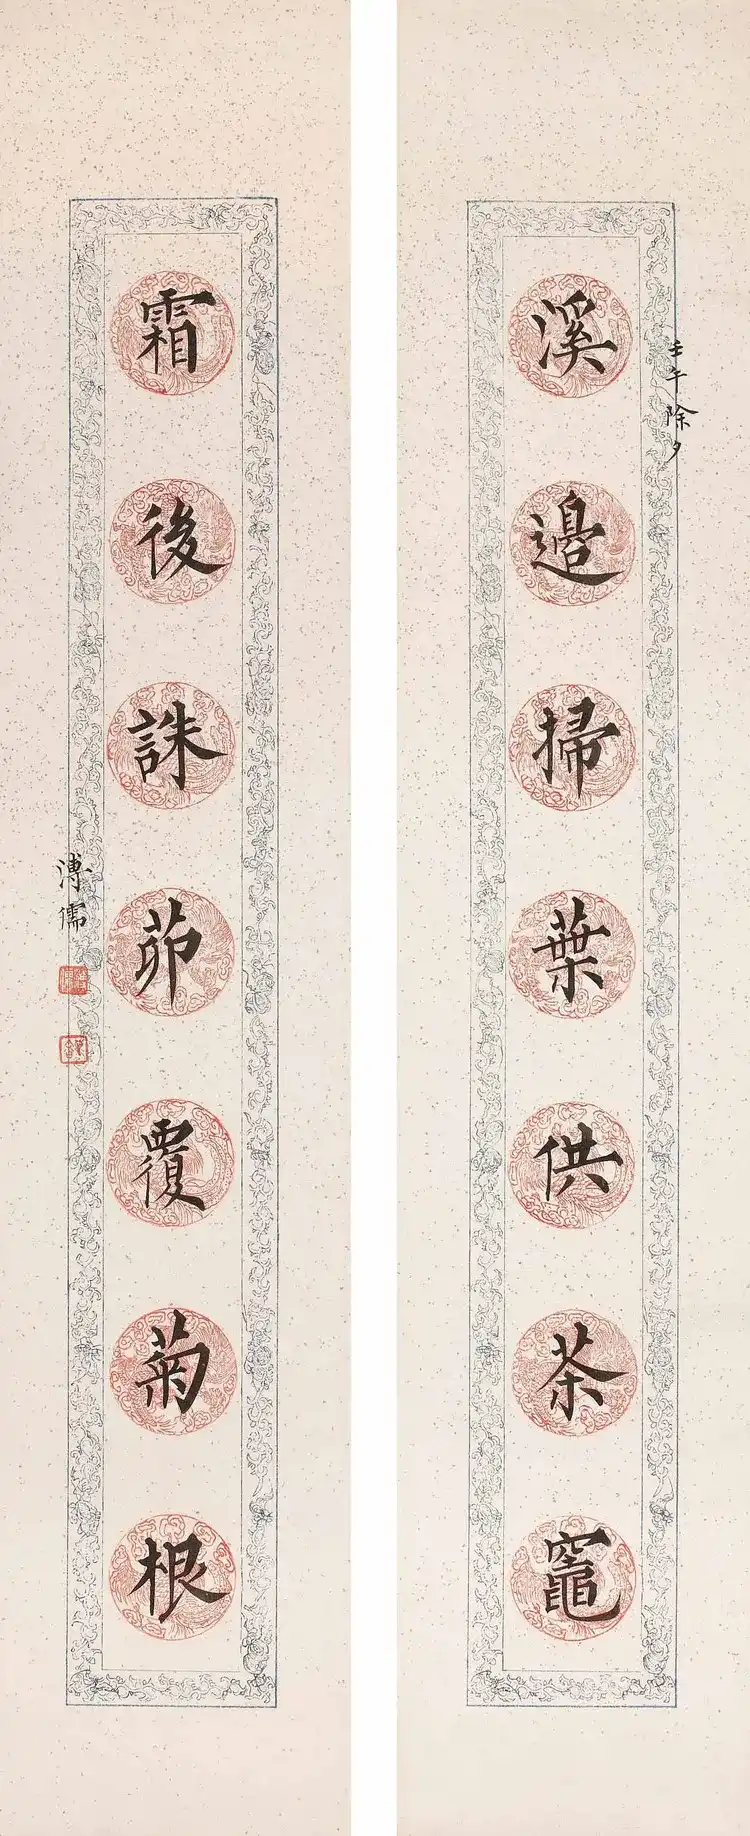 壬午除夕
溪邊掃葉供茶竈
霜後誅茆覆菊根
溥儒